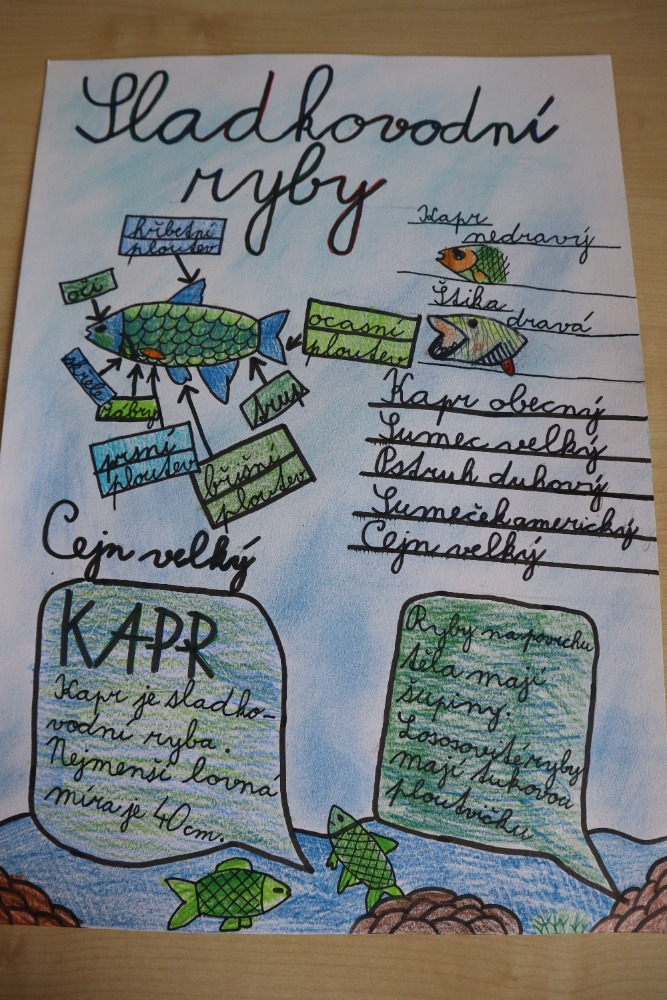 Sladkovodní
ryby
hřbetní
ploutev
oči
ocasní
ploutev
skřele
žábry
trup
prsní
ploutev
břišní
ploutev
Cejn velký
Kapr
nedravý
Štika
dravá
Kapr obecný
Sumec velký
Pstruh duhový
Sumeček americký
Cejn velký
KAPR
Kapr je sladko-
vodní ryba.
Nejmenší lovná
míra je 40cm.
Ryby na povrchu
těla mají
šupiny.
Lososovité ryby
mají tukovou
ploutvičku